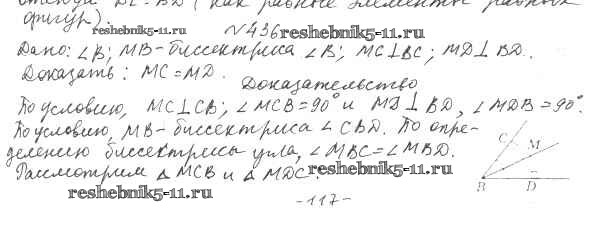 отсюда DC = BD (как равные элементы равных
фигур).
reshebnik5-11.ru
№436 reshebnik5-11.ru
Дано: ∠B; MB - биссектриса ∠B; MC⊥BC; MD⊥BD.
Доказать: MC = MD.
Доказательство
По условию, MC⊥CB; ∠MCB = 90° и MD⊥BD, ∠MDB = 90°.
По условию, MB - биссектриса ∠CBD. По опре-
делению биссектрисы угла, ∠MBC = ∠MBD.
Рассмотрим △MCB и △MDC. reshebnik5-11.ru
reshebnik5-11.ru
C M
B D
-117-